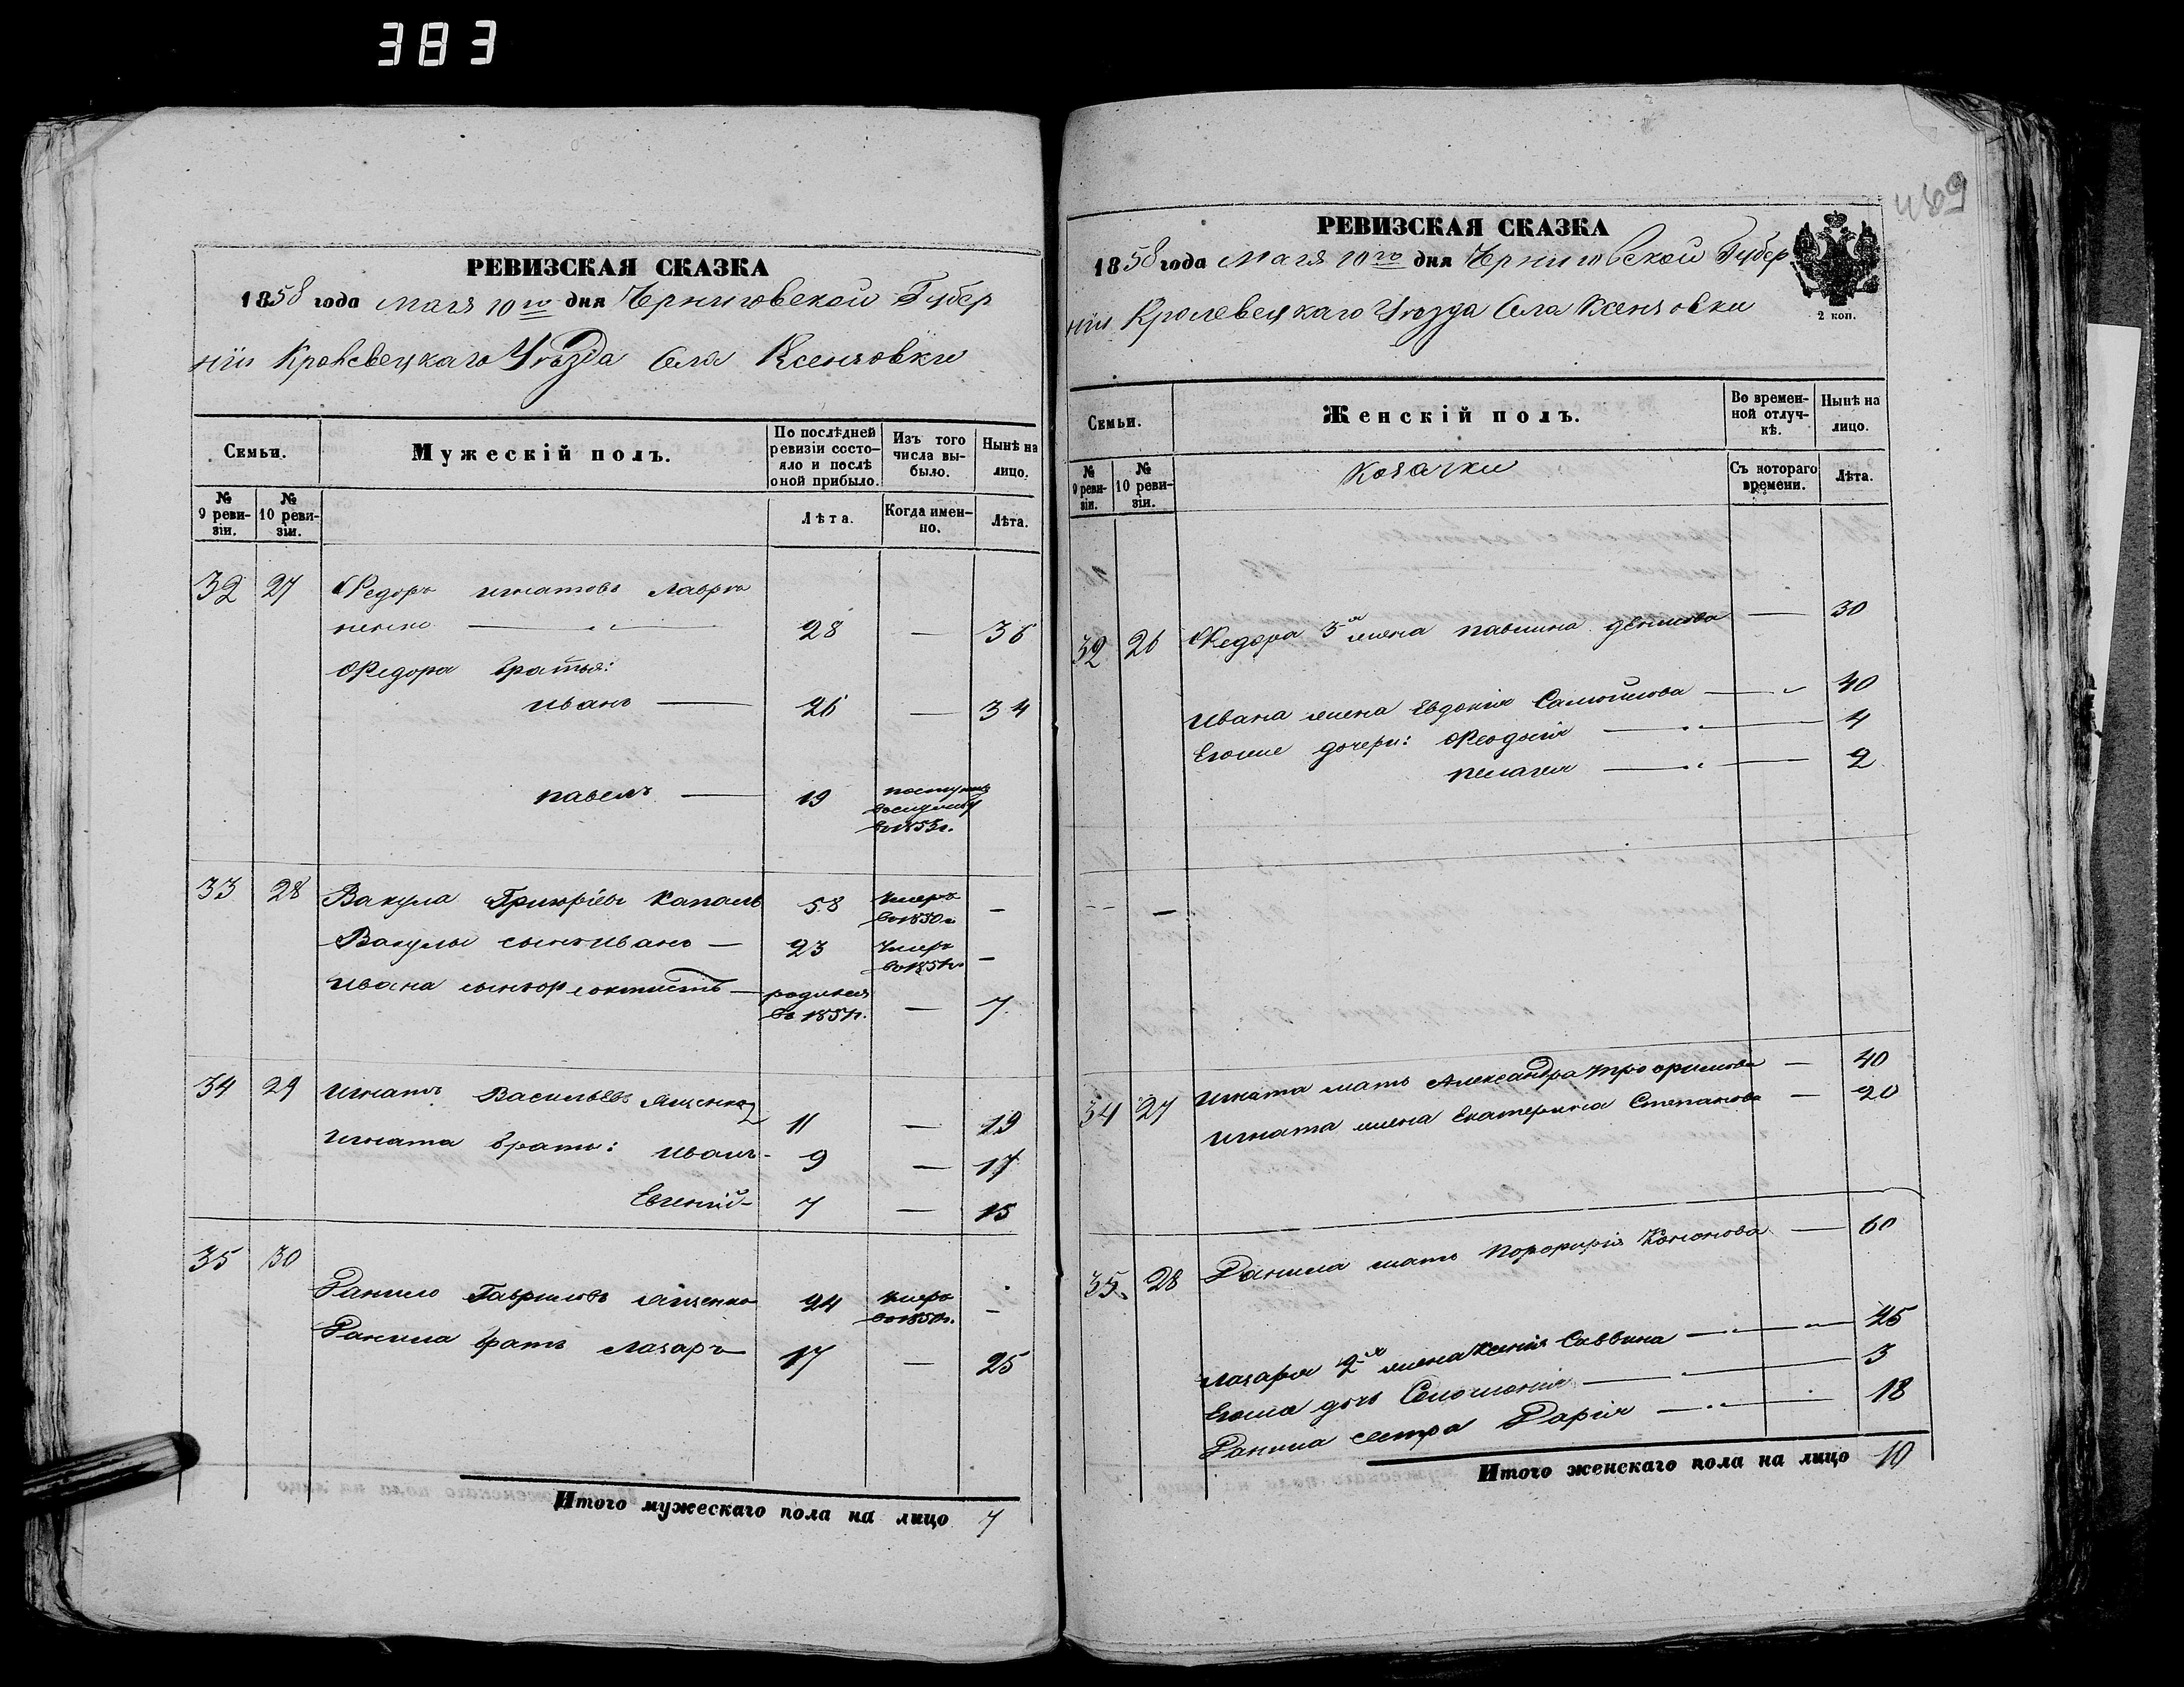 383
РЕВИЗСКАЯ СКАЗКА
1858 года Мая 10го дня Черниговской Губер
ніи Кролевецкаго Уѣзда Села Ксензовки
Семьи.
Мужескій полъ.
По послѣдней ревизіи состо-яло и послѣ оной прибыло.
Изъ того числа вы-было.
Нынѣ на лицо.
№ 9 реви-зіи.
№ 10 реви-зіи.
Лѣта.
Когда имен-но.
Лѣта.
32 27 Федоръ Игнатовъ Лаврѣ
ненко 28 — 36
Федора братья:
Иванъ — 26 — 34
Павелъ — 19 поступилъ
въ 1853г.
33 28 Вакула Григоріевъ Капаль 58 Умеръ —
въ 1850г
Вакулы сынъ Иванъ — 23 Умеръ —
въ 1851г.
Ивана сынъ — родился — 7
въ 1851г.
34 29 Игнатъ Васильевъ Ященко 11 — 19
Игната братья: Иванъ 9 — 17
Евгеній 7 — 15
35 30
Данило Гавриловъ Ященко 24 Умеръ —
въ 1850г.
Данила братъ Лазаръ 17 — 25
Итого мужескаго пола на лицо 7
469
РЕВИЗСКАЯ СКАЗКА
1858 года Мая 10го дня Черниговской Губер
ніи Кролевецкаго Уѣзда Села Ксензовки
2 коп.
Семьи.
Женскій полъ.
Во времен-ной отлуч-кѣ.
Нынѣ на лицо.
№ 9 реви-зіи.
№ 10 реви-зіи.
Козачки
Съ котораго времени.
Лѣта.
32 26 Федора 3я жена Павлина Денисова — 30
Ивана жена Евдокія Самойлова — 40
Егоже дочери: Феодосія — 4
Пелагея — 2
— —
34 27 Игната мать Александра Трофимова — 40
Игната жена Екатерина Степанова — 20
35 28 Данила мать Порфирія Кононова — 60
Лазаря 2я жена Ксенія Саввина — 25
Егоже дочь Соломонія — 3
Данила сестра Дарія — 18
Итого женскаго пола на лицо 10